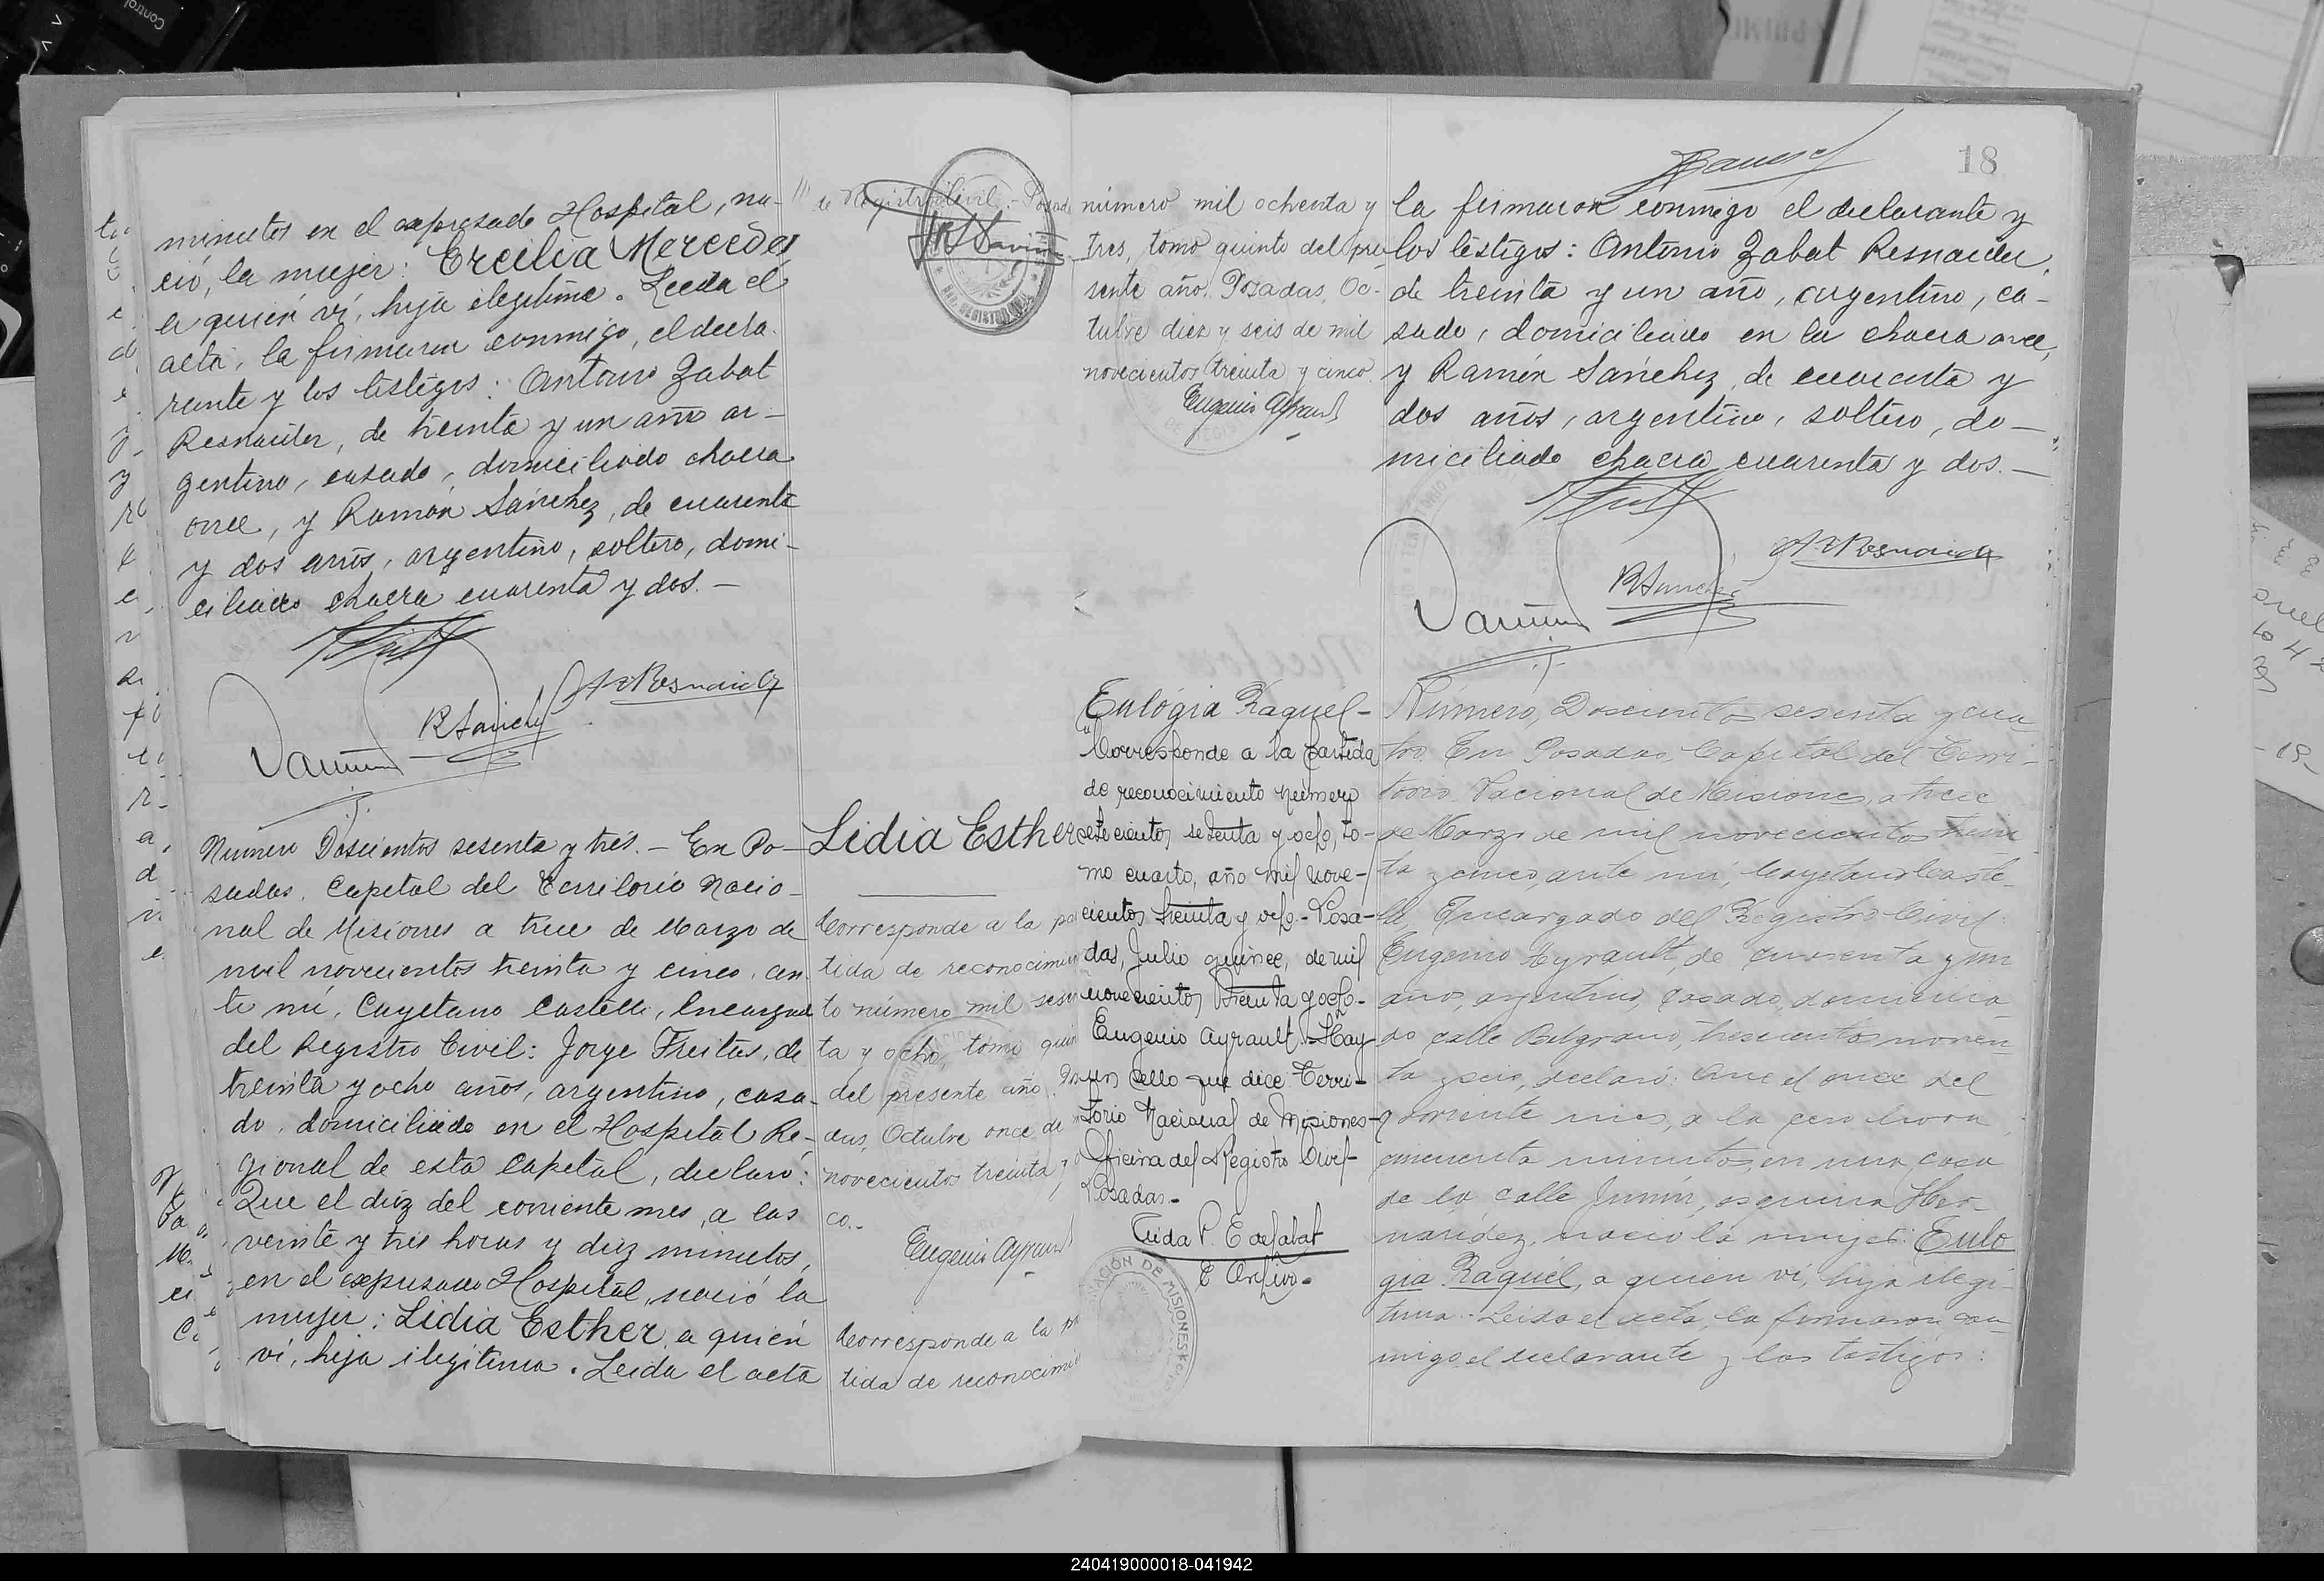 minutos en el expresado Hospital, na-
ció, la mujer: Ercilia Mercedes
a quién ví, hija ilegítima. Leida el
acta, la firmaron conmigo, el decla-
rante y los testigos: Antonio Zabat
Resnaider, de treinta y un año ar-
gentino, casado, domiciliado chacra
once, y Ramón Sánchez, de cuarenta
y dos años, argentino, soltero, domi-
ciliado chacra cuarenta y dos.—
R Sanchez
A Z Resnaider
Numero Doscientos sesenta y trés.— En Po-
sadas, Capital del Territorio Nacio-
nal de Misiones a trece de Marzo de
mil novecientos treinta y cinco, an-
te mí, Cayetano Castelli, Encargado
del Registro Civil: Jorge Freitas, de
treinta y ocho años, argentino, casa-
do, domiciliado en el Hospital Re-
gional de esta Capital, declaró:
Que el diez del corriente mes, a las
veinte y tres horas y diez minutos,
en el expresado Hospital, nació la
mujer: Lidia Esther, a quién
ví, hija ilegítima. Leida el acta
de Registro Civil.- Posad
Lidia Esther
Corresponde a la pa
tida de reconocimien
to número mil sesen
ta y ocho, tomo quin
del presente año.
das, Octubre once de
novecientos treinta y
co.-
Eugenio Ayrault
Corresponde a la
tida de reconocimie
número mil ochenta y
tres, tomo quinto del pre
sente año. Posadas, Oc-
tubre diez y seis de mil
novecientos treinta y cinco.
Eugenio Ayrault
Eulógia Raquel-
Corresponde a la partida
de reconocimiento número
setecientos setenta y ocho, to-
mo cuarto, año mil nove-
cientos treinta y ocho- Posa-
das, Julio quince, de mil
novecientos treinta y ocho-
Eugenio Ayrault. Hay
un sello que dice: Terri-
torio Nacional de Misiones-
Oficina del Registro Civil-
Posadas.-
18
la firmaron conmigo el declarante y
los testigos: Antonio Zabat Resnaider,
de treinta y un año, argentino, ca-
sado, domiciliado en la chacra once,
y Ramón Sánchez, de cuarenta y
dos años, argentino, soltero, do-
miciliado chacra cuarenta y dos.—
R Sanchez
A Z Resnaider
Número, Doscientos sesenta y cua
tro. En Posadas, Capital del Terri-
torio Nacional de Misiones, a trece
de Marzo de mil novecientos trein
ta y cinco, ante mí, Cayetano Caste-
lli, Encargado del Registro Civil:
Eugenio Ayrault, de cuarenta y un
año, argentino, casado, domicilia
do calle Belgrano, trescientos noven
ta y seis, declaró: Que el once del
corriente mes, a la cero hora
cincuenta minutos, en una casa
de la calle Junín, esquina Her-
nandez, nació la mujer: Eulo
gia Raquél, a quien ví, hija ilegí-
tima.- Leida el acta, la firmaron con
migo el declarante y los testigos:
240419000018-041942